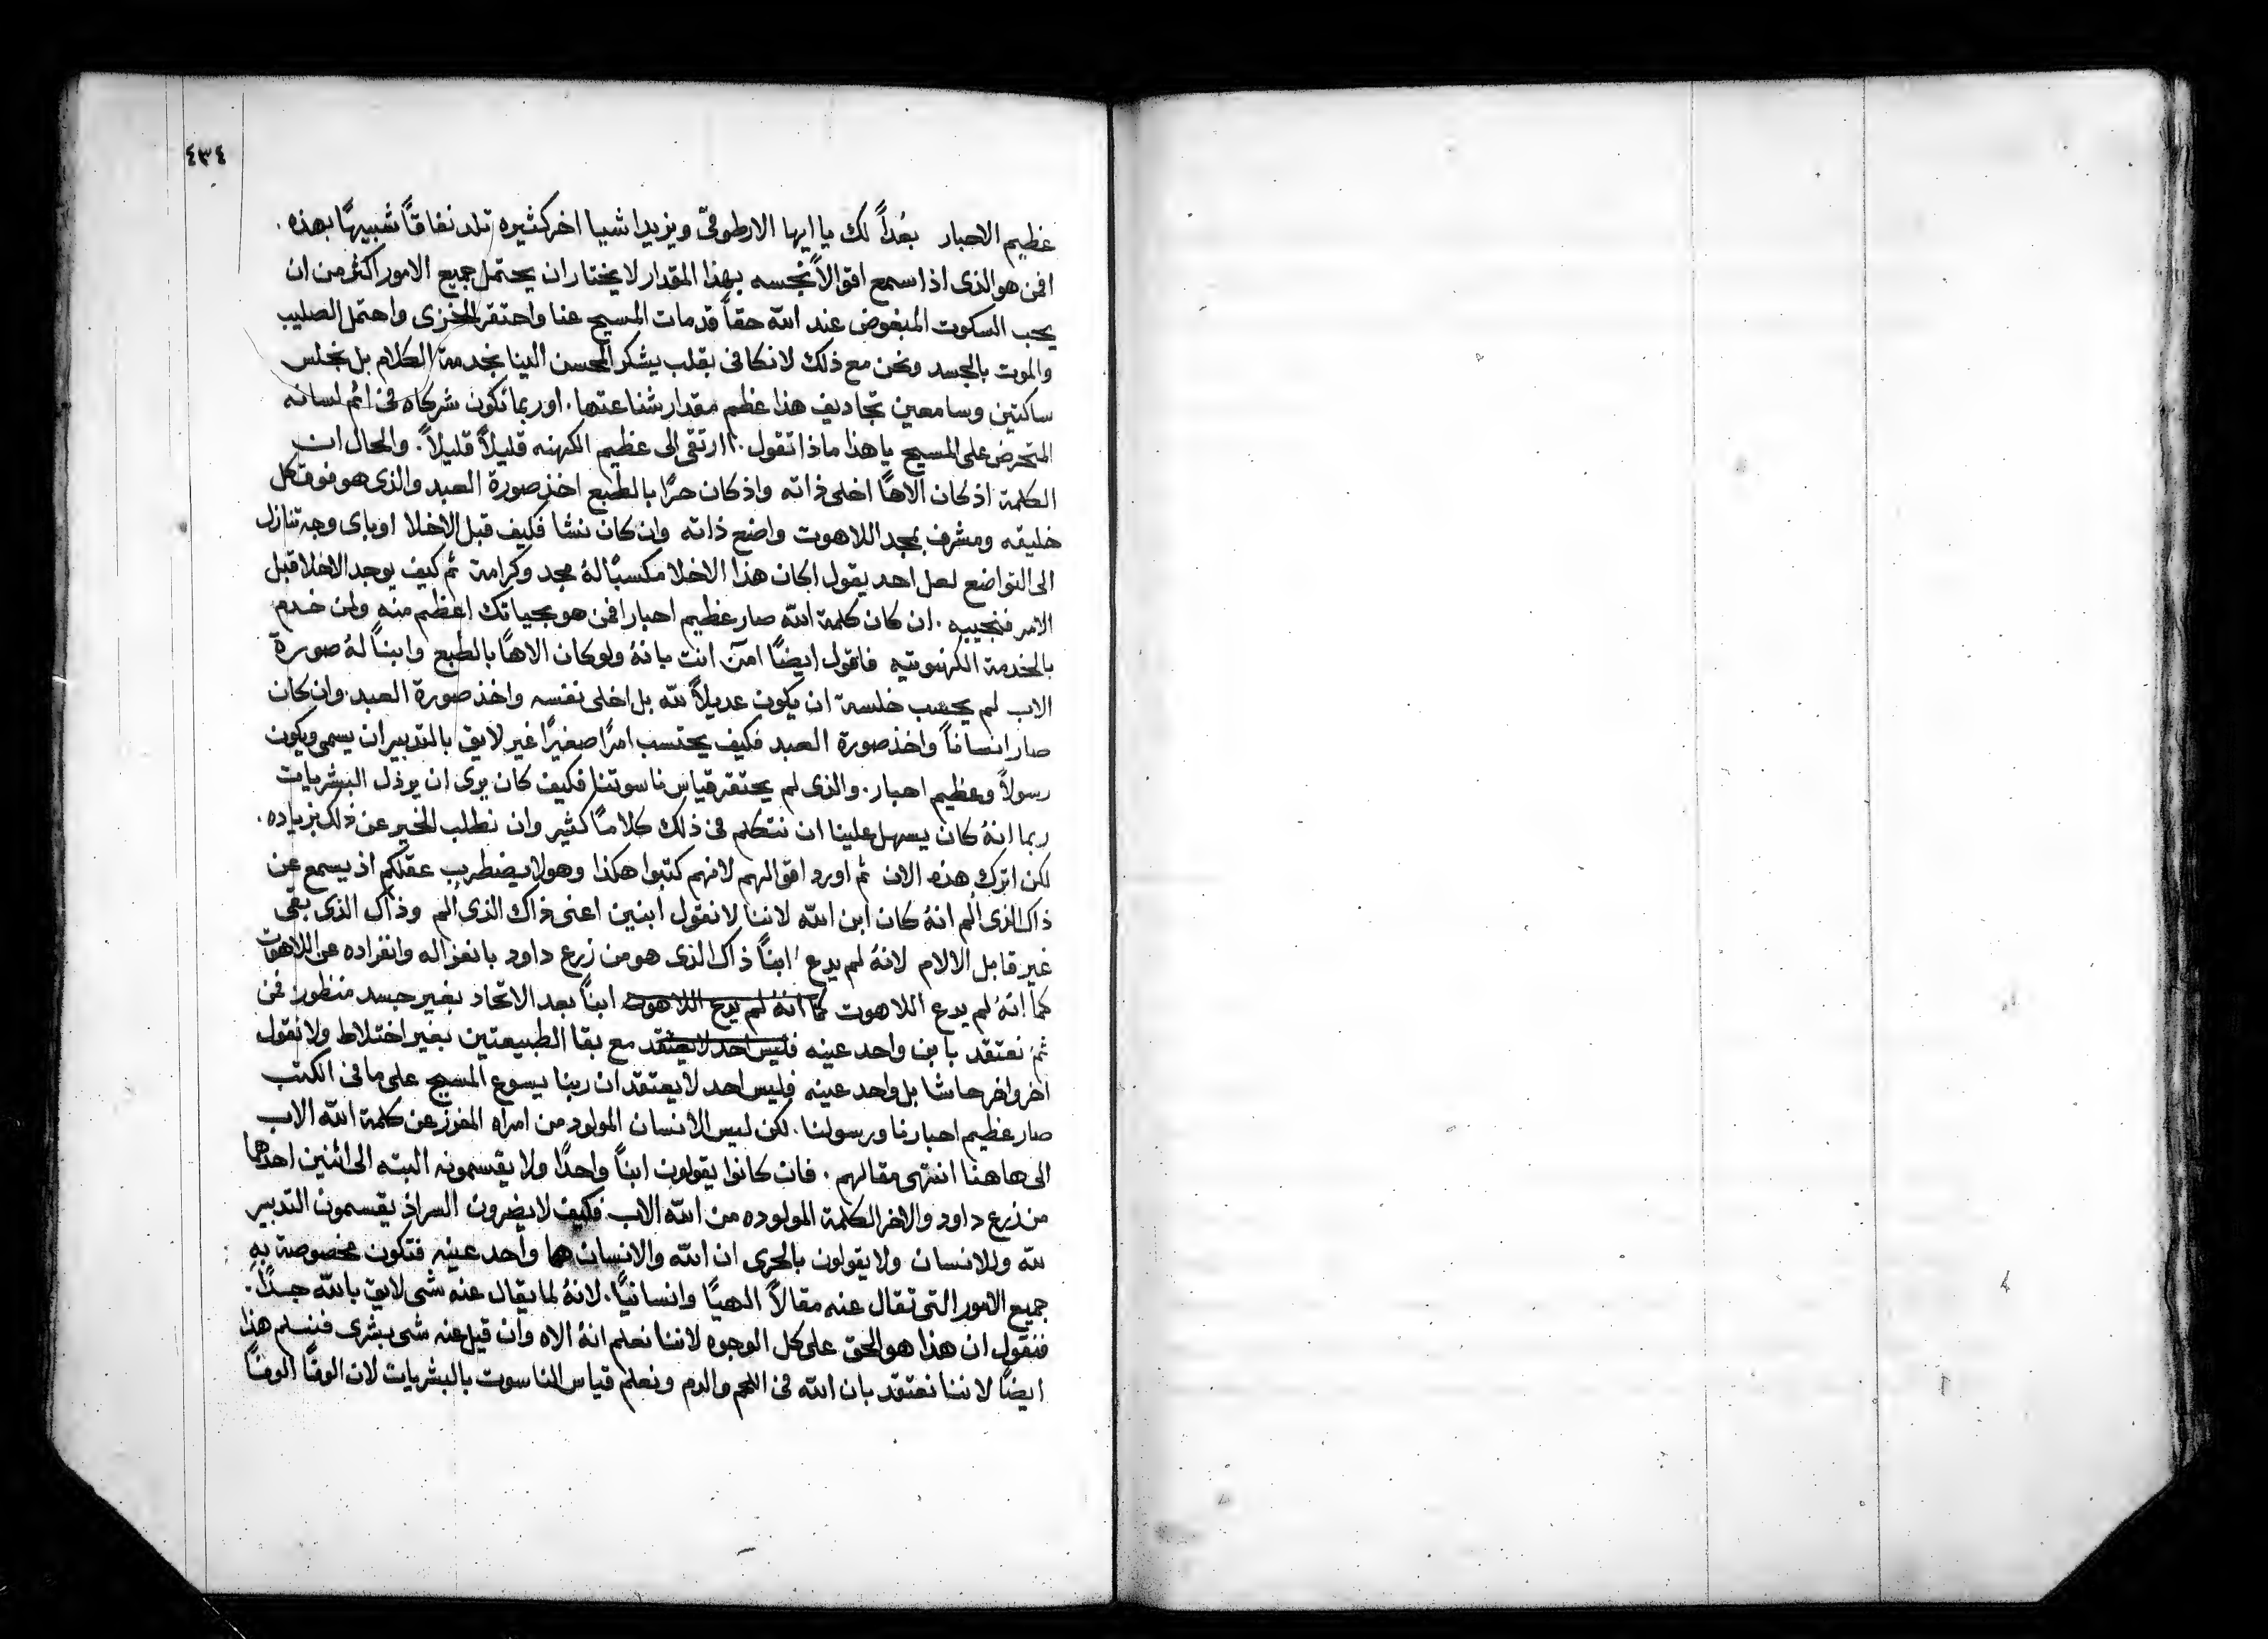 ٤٣٤
عظيم الاحبار بعُداً لك يا ايها الارطوقيّ ويزيد اشيا اخر كثيره تلد نفاقاً شبيهاً بهذه .
افمن هو الذى اذا سمع اقوالاً نجسه بهذا المقدار لا يختار ان يحتمل جميع الامور اكثر من ان
يحب السكوت المبغوض عند الله حقاً قد مات المسيح عنا واحتقر الخزى واحتمل الصليب
والموت بالجسد ونحن مع ذلك لا نكافى بقلب يشكر المحسن الينا بخدمة الكلام بل نجلس
ساكتين وسامعين تجاديف هذا عظيم مقدار شناعتها . او ربما نكون شركاه فى اثم لسانه
المتحرض على المسيح يا هذا ماذا تقول . اارتقى الى عظيم الكهنه قليلاً قليلاً . والحال ان
الكلمة اذ كان الاهاً اخلى ذاته واذ كان حرًا بالطبع اخذ صورة العبد والذى هو فوق كل
خليقه ومشرف بمجد اللاهوت واضع ذاته وان كان نشا فكيف قبل الاخلا او باى وجه تنازل
الى التواضع لعل احد يقول اكان هذا الاخلا مكسبًا لهُ مجد وكرامة ثم كيف يوجد الاخلا قبل
الامر فنجيبه . ان كان كلمة الله صار عظيم احبار افمن هو بحياتك اعظم منه ولمن خدم
بالخدمة الكهنوتيه فاقول ايضًا امن انت بانهُ ولو كان الاهاً بالطبع وابناً لهُ صورة
الاب لم يحسب خلسة ان يكون عديلاً لله بل اخلى نفسه واخذ صورة العبد . وان كان
صار انساناً واخذ صورة العبد فكيف يحتسب امرًا صغيرًا غير لايق بالتدبير ان يسمى ويكون
رسولاً وعظيم احبار . والذى لم يحتقر قياس ناسوتنا فكيف كان يرى ان يرذل البشريات
ربما انهُ كان يسهل علينا ان نتكلم فى ذلك كلامًا كثير وان نطلب الخير عن ذلك بزياده .
لكن اترك هذه الان ثم اورد اقوالهم لانهم كتبوا هكذا وهو لا يضطرب عقلكم اذ يسمع عن
ذاك الذى الم انهُ كان ابن الله لاننا لا نقول ابنين اعنى ذاك الذى الم وذاك الذى بقى
غير قابل الالام لانهُ لم يدع ابناً ذاك الذى هو من زرع داود بانعزاله وانفراده عن اللاهوت
كما انهُ لم يدع اللاهوت كما انهُ لم يدع اللاهوت ابناً بعد الاتحاد بغير جسد منظور فمن
ثمَ نعتقد بابن واحد عينه فليس احد لا يعتقد مع بقا الطبيعتين بغير اختلاط ولا نقول
اخر واخر حاشا بل واحد عينه فليس احد لا يعتقد ان ربنا يسوع المسيح على ما فى الكتب
صار عظيم احبارنا ورسولنا . لكن ليس الانسان المولود من امراه المفرز عن كلمة الله الاب
الى هاهنا انتهى مقالهم . فان كانوا يقولون ابناً واحدًا ولا يقسمونه البته الى اثنين احدهما
من زرع داود والاخر الكلمة المولوده من الله الاب فكيف لا يضرون السر اذ يقسمون التدبير
لله وللانسان ولا يقولون بالحرى ان الله والانسان هما واحد عينه فتكون مخصوصة بهِ
جميع الامور التى تقال عنه مقالاً الهيًا وانسانيًا . لانهُ لما يقال عنه شى لايق بالله جدًا .
فنقول ان هذا هو الحق على كل الوجوه لاننا نعلم انهُ الاه وان قيل عنه شى بشرى فنسلم هذا
ايضًا لاننا نعتقد بان الله فى اللحم والدم ونعلم قياس الناسوت بالبشريات لان الوفًا الوفًا